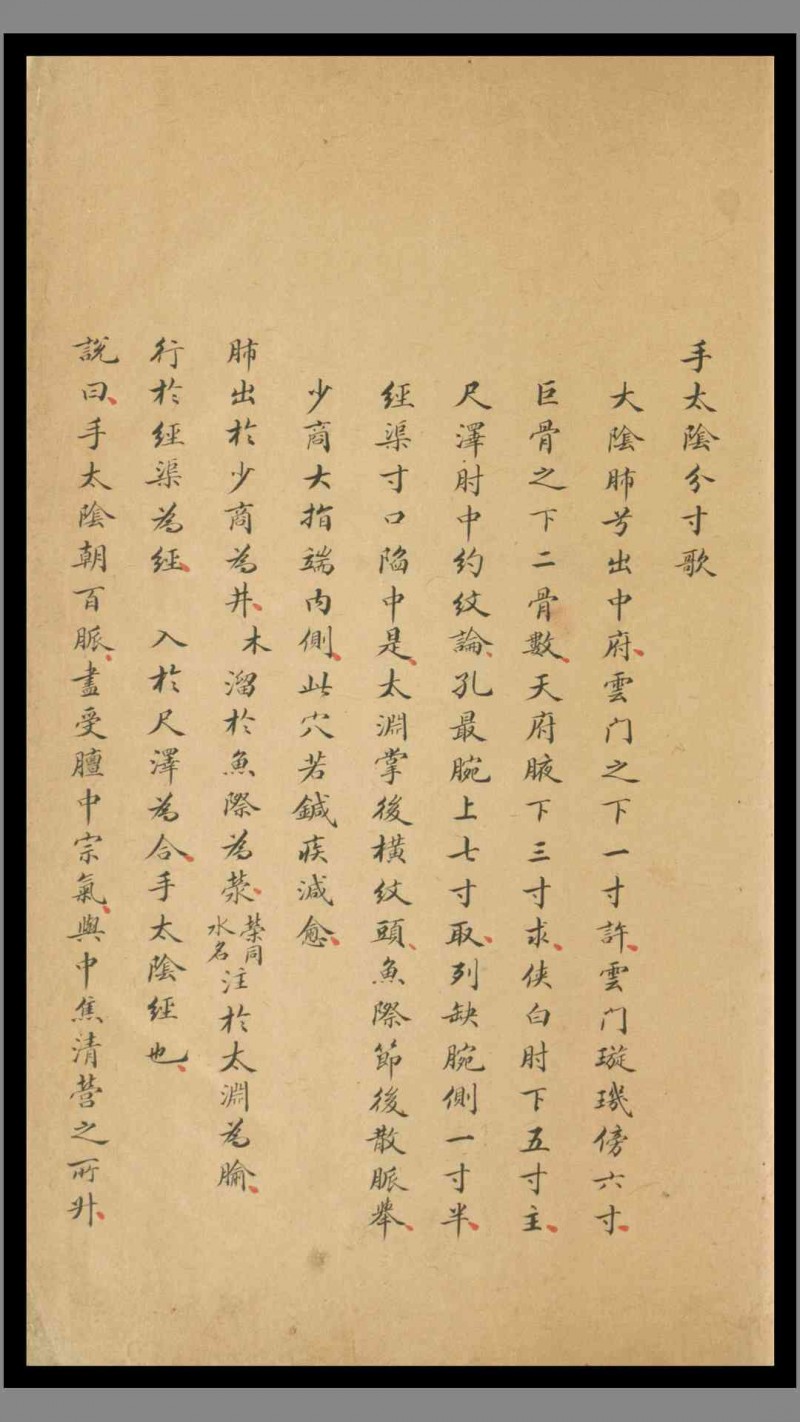 手太陰分寸歌
大陰肺兮出中府、雲门之下一寸許、雲门璇璣傍六寸、
巨骨之下二骨數、天府腋下三寸求、侠白肘下五寸主、
尺澤肘中約紋論、孔最腕上七寸取、列缺腕側一寸半、
經渠寸口陷中是、太淵掌後橫紋頭、魚際節後散脈舉、
少商大指端內側、此穴若鍼疾減愈、
肺出於少商為井、木溜於魚際為滎、滎同水名注於太淵為腧、
行於經渠為經、入於尺澤為合、手太陰經也、
說曰、手太陰朝百脈、盡受膻中宗氣、與中焦清營之所升、